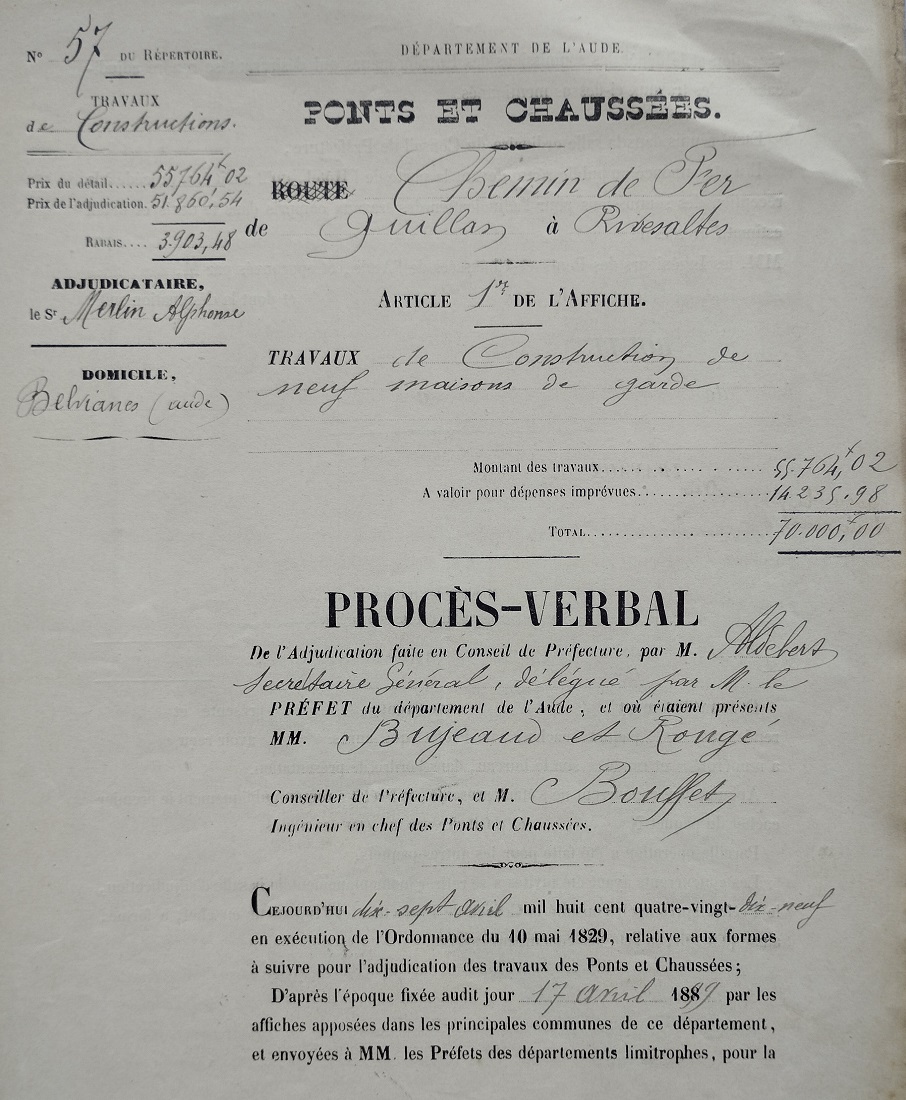 N° 57 DU RÉPERTOIRE.
TRAVAUX
de Constructions.
Prix du détail...... 55,764f02
Prix de l'adjudication. 51.860,54
RABAIS.... 3.903,48
ADJUDICATAIRE,
le Sr Merlin Alphonse
DOMICILE,
Belvianes (aude)
DÉPARTEMENT DE L'AUDE.
PONTS ET CHAUSSÉES.
ROUTE Chemin de Fer
de Quillan à Rivesaltes
ARTICLE 1er DE L'AFFICHE.
TRAVAUX de Construction de
neuf maisons de garde
Montant des travaux........ 55.764f,02
A valoir pour dépenses imprévues........ 14.235.98
TOTAL........ 70.000f,00
PROCÈS-VERBAL
De l'Adjudication faite en Conseil de Préfecture, par M. Aldebert
Secrétaire Général, délégué par M. le
PRÉFET du département de l'Aude, et où étaient présents
MM. Bujeaud et Rougé
Conseiller de Préfecture, et M. Bouffet
Ingénieur en chef des Ponts et Chaussées.
CEJOURD'HUI dix-sept avril mil huit cent quatre-vingt-dix-neuf
en exécution de l'Ordonnance du 10 mai 1829, relative aux formes
à suivre pour l'adjudication des travaux des Ponts et Chaussées;
D'après l'époque fixée audit jour 17 avril 1899 par les
affiches apposées dans les principales communes de ce département,
et envoyées à MM. les Préfets des départements limitrophes, pour la